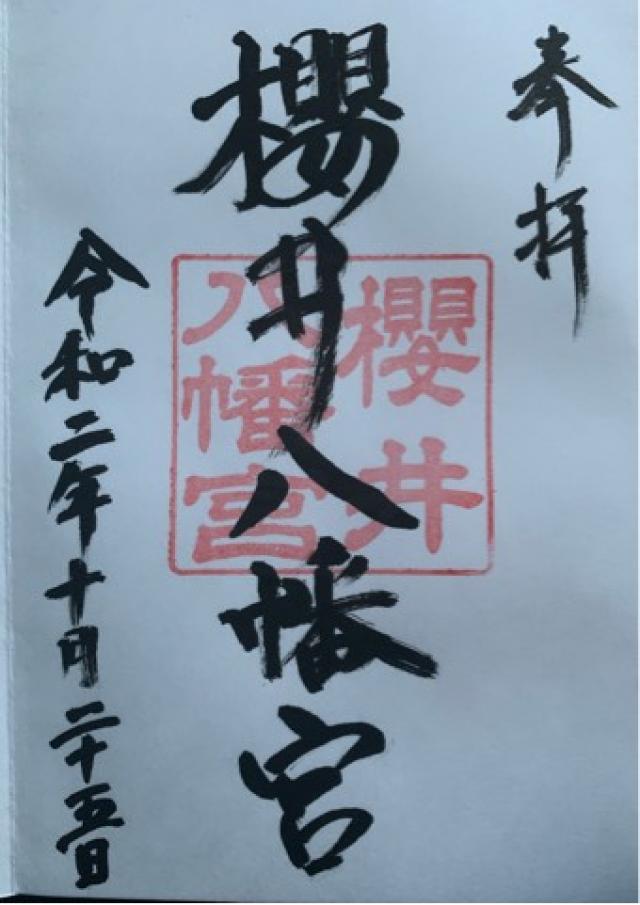 奉拝
櫻井八幡宮
櫻井
八幡宮
令和二年十月二十五日